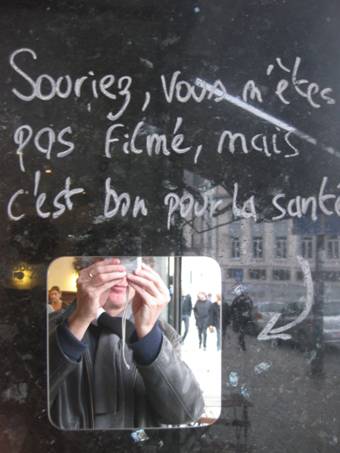 Souriez, vous n'êtes
pas filmé, mais
c'est bon pour la santé